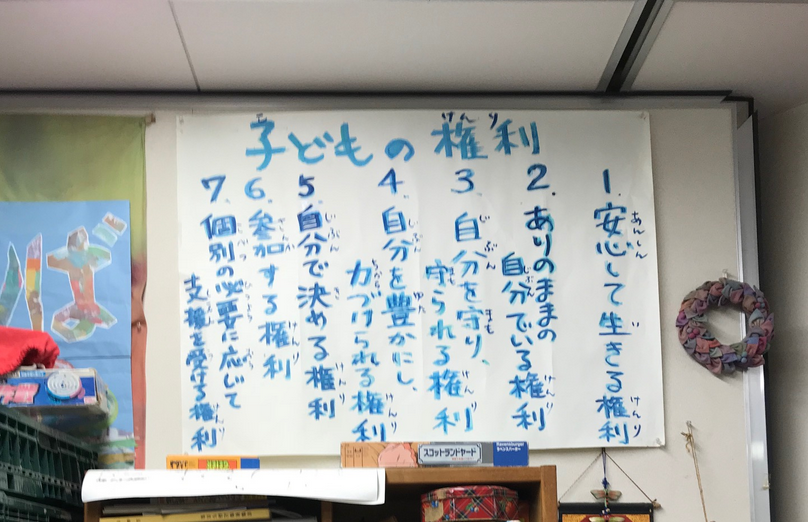 子どもの権利
1. 安心して生きる権利
2. ありのままの
自分でいる権利
3. 自分を守り、
守られる権利
4. 自分を豊かにし、
力づけられる権利
5. 自分で決める権利
6. 参加する権利
7. 個別の必要に応じて
支援を受ける権利
スコットランドヤード
Ravensburger